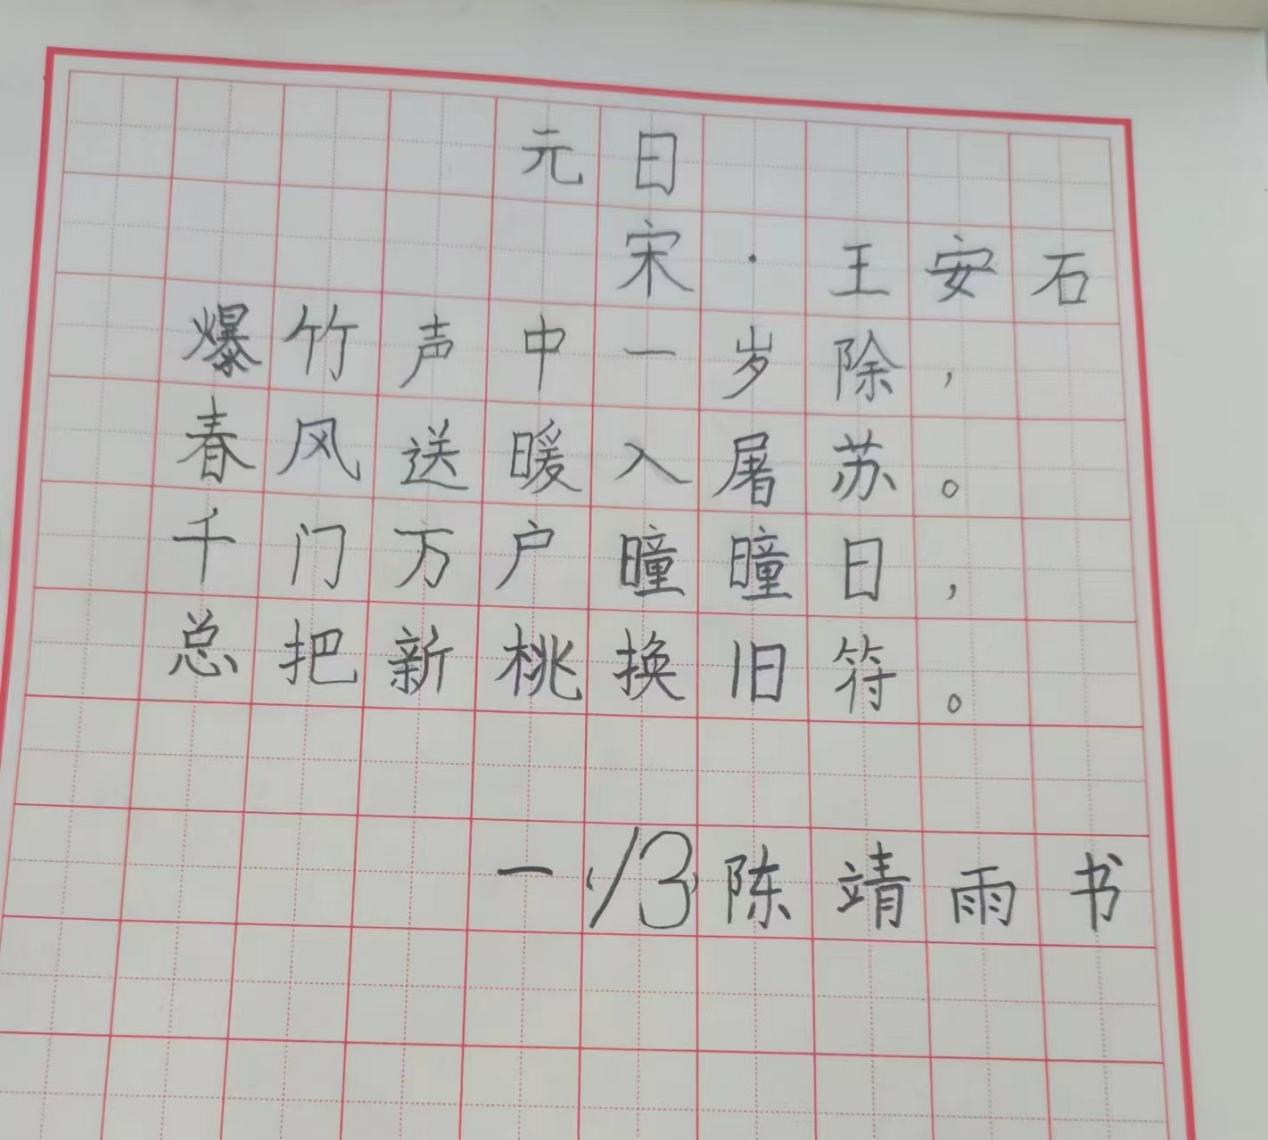 元日
宋·王安石
爆竹声中一岁除，
春风送暖入屠苏。
千门万户曈曈日，
总把新桃换旧符。
一(13)陈靖雨书